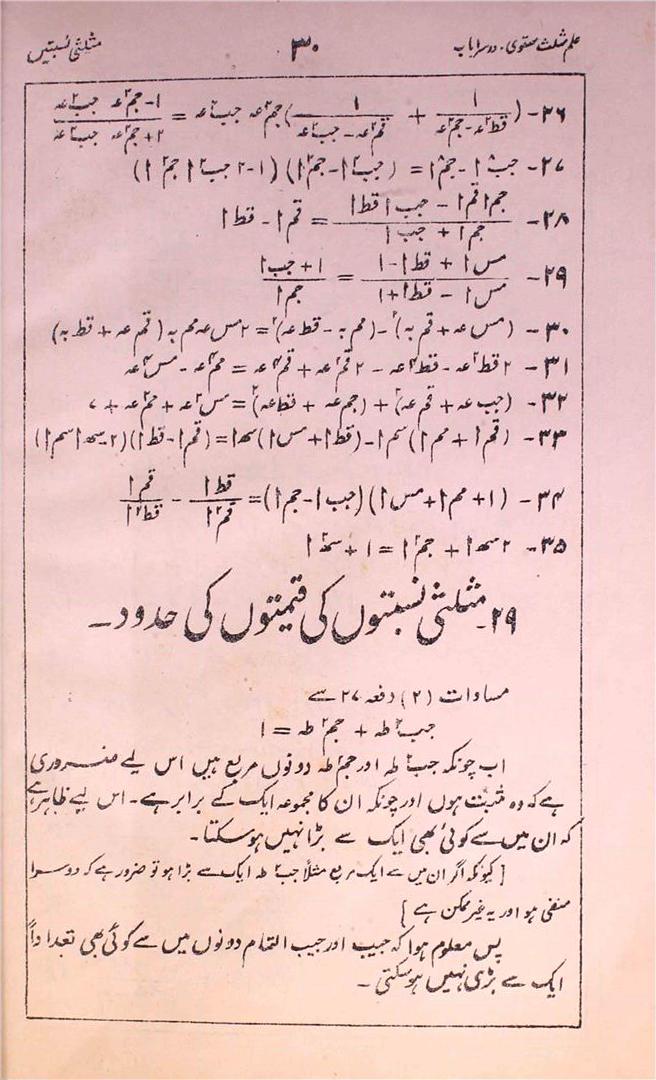 علم مثلث مستوی۔ دوسرا باب ۳۰ مثلثی نسبتیں
۲۶- (۱/(قط۲عہ-جم۲عہ) + ۱/(قم۲عہ-جب۲عہ)) جم۲عہ جب۲عہ = (۱-جم۲عہ جب۲عہ)/(۲+جم۲عہ جب۲عہ)
۲۷- جب۸ا-جم۸ا = (جب۲ا-جم۲ا)(۱-۲جب۲ا جم۲ا)
۲۸- (جم ا قم ا - جب ا قط ا)/(جم ا + جب ا) = قم ا - قط ا
۲۹- (مس ا + قط ا - ۱)/(مس ا - قط ا + ۱) = (۱ + جب ا)/جم ا
۳۰- (مس عہ + قم بہ)۲-(مم بہ - قط عہ)۲ = ۲ مس عہ مم بہ (قم عہ + قط بہ)
۳۱- ۲ قط۲عہ - قط۴عہ - ۲ قم۲عہ + قم۴عہ = مم۴عہ - مس۴عہ
۳۲- (جب عہ + قم عہ)۲ + (جم عہ + قط عہ)۲ = مس۲عہ + مم۲عہ + ۷
۳۳- (قم ا + مم ا) سم ا - (قط ا + مس ا) سھ ا = (قم ا - قط ا)(۲-سھ ا سم ا)
۳۴- (۱ + مم ا + مس ا)(جب ا - جم ا) = قط ا/قم۲ا - قم ا/قط۲ا
۳۵- ۲ سھ ا + جم۲ا = ۱ + سھ۲ا
۲۹۔ مثلثی نسبتوں کی قیمتوں کی حدود۔
مساوات (۲) دفعہ ۲۷ سے
جب۲طہ + جم۲طہ = ۱
اب چونکہ جب۲طہ اور جم۲طہ دونوں مربع ہیں اس لیے ضروری
ہے کہ وہ مثبت ہوں اور چونکہ ان کا مجموعہ ایک کے برابر ہے۔ اس لیے ظاہر ہے
کہ ان میں سے کوئی بھی ایک سے بڑا نہیں ہوسکتا۔
[کیونکہ اگر ان میں سے ایک مربع مثلاً جب۲طہ ایک سے بڑا ہو تو ضرور ہے کہ دوسرا
منفی ہو اور یہ غیر ممکن ہے]
پس معلوم ہوا کہ جیب اور جیب التمام دونوں میں سے کوئی بھی تعداداً
ایک سے بڑی نہیں ہوسکتی۔